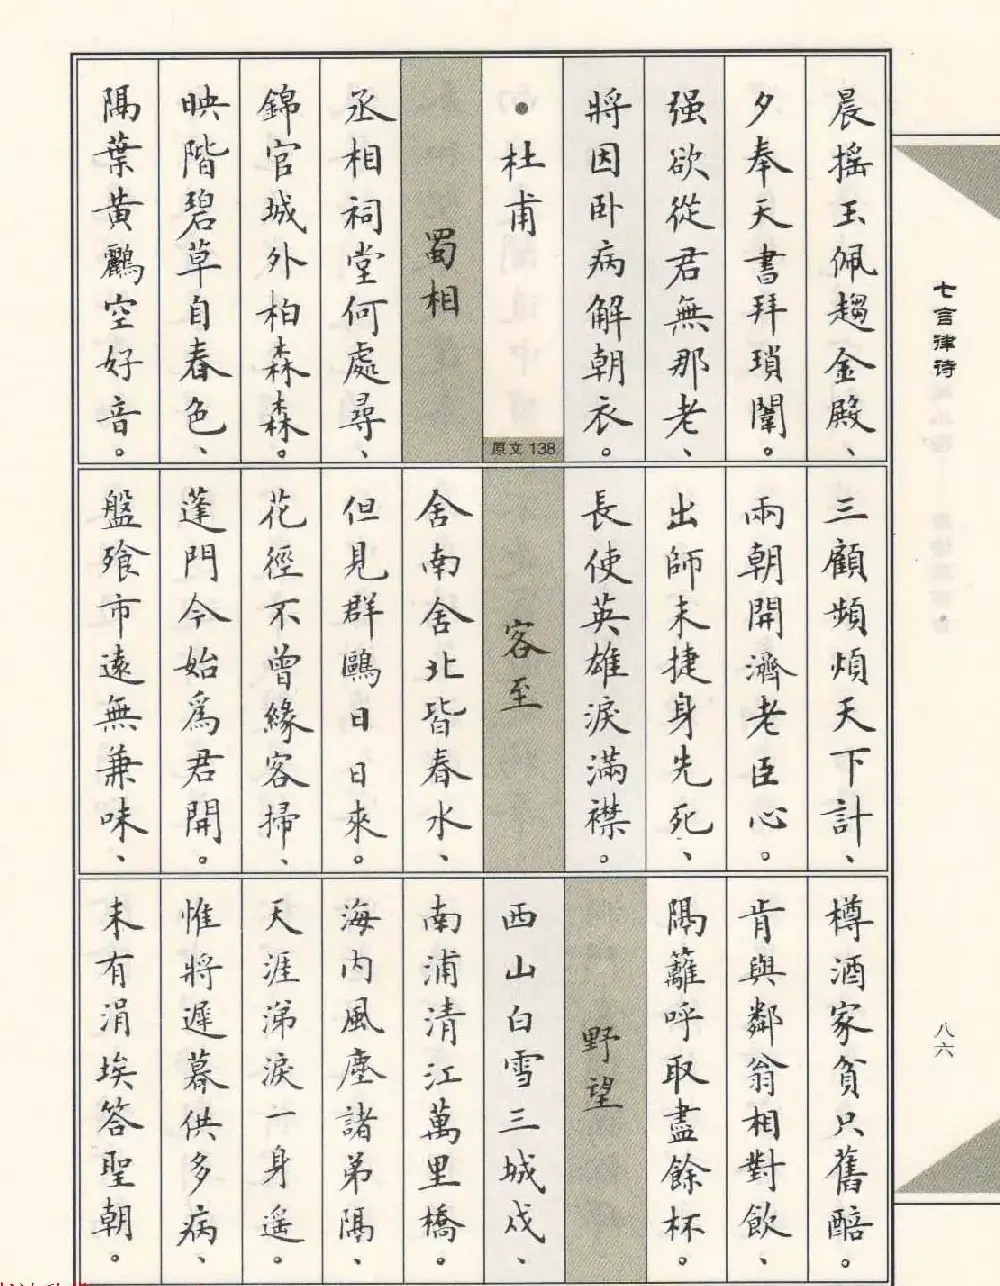 晨摇玉佩趨金殿、
夕奉天書拜瑣闈。
强欲從君無那老、
將因卧病解朝衣。
·杜甫
原文 138
蜀相
丞相祠堂何處尋、
錦官城外柏森森。
映階碧草自春色、
隔葉黄鸝空好音。
三顧頻煩天下計、
兩朝開濟老臣心。
出師未捷身先死、
長使英雄淚滿襟。
客至
舍南舍北皆春水、
但見群鷗日日來。
花徑不曾緣客掃、
蓬門今始爲君開。
盤飧市遠無兼味、
樽酒家貧只舊醅。
肯與鄰翁相對飲、
隔籬呼取盡餘杯。
野望
西山白雪三城戍、
南浦清江萬里橋。
海内風塵諸弟隔、
天涯涕淚一身遥。
惟將遲暮供多病、
未有涓埃答聖朝。
七言律诗
八六